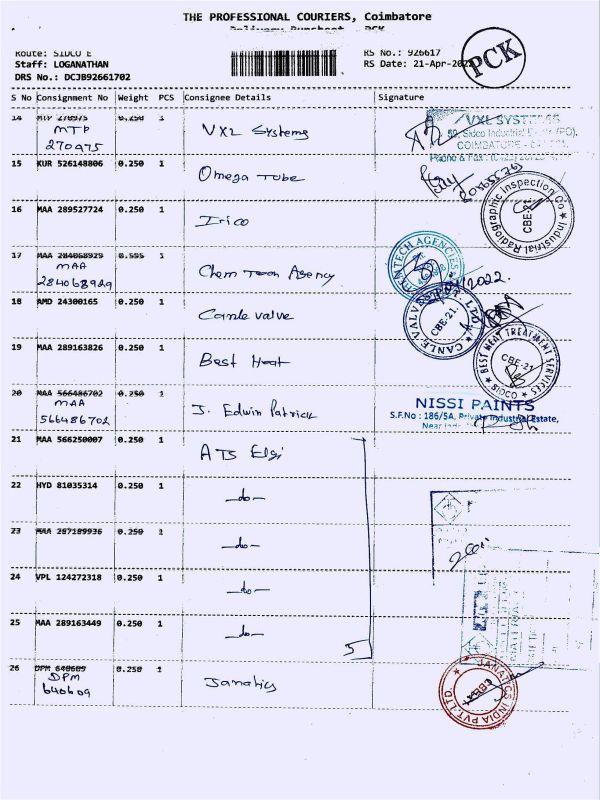 THE PROFESSIONAL COURIERS, Coimbatore
Delivery Runsheet - PCK
Route: SIDCO E
Staff: LOGANATHAN
DRS No.: DCJB92661702
RS No.: 926617
RS Date: 21-Apr-2022
PCK
S No Consignment No Weight PCS Consignee Details Signature
14 MTP 270975 0.250 1 VXL Systems
MTP
270975
VXL SYSTEMS
COIMBATORE
15 KUR 526148806 0.250 1 Omega Tube
16 MAA 289527724 0.250 1 Irico
Industrial Radiographic Inspection Co
CBE-21.
17 MAA 284068929 0.595 1 Chem Tech Agency
MAA
284068929
TECH AGENCIES
2022.
18 AMD 24300165 0.250 1 Canle valve
CANLE VALVES PVT. LTD
CBE-21.
19 MAA 289163826 0.250 1 Best Heat
BEST HEAT TREATMENT SERVICES
CBE-21
SIDCO
20 MAA 566486702 0.250 1 J. Edwin Patrick
MAA
566486702
NISSI PAINTS
S.F.No : 186/5A, Private Industrial Estate,
21 MAA 566250007 0.250 1 ATS Elgi
22 HYD 81035314 0.250 1 -do-
23 MAA 287189936 0.250 1 -do-
24 VPL 124272318 0.250 1 -do-
25 MAA 289163449 0.250 1 -do-
5
26 DPM 640609 0.250 1 Janatics
DPM
640609
JANATICS INDIA PVT. LTD.